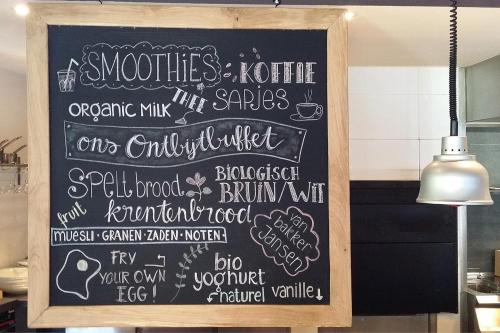 SMOOTHIES
KOFFIE
ORGANIC MILK
THEE
SAPJES
ons Ontbytbuffet
Spelt brood
BIOLOGISCH
BRUIN/WIT
fruit
krentenbrood
van
bakker
Jansen
MUESLI · GRANEN · ZADEN · NOTEN ·
FRY
YOUR OWN
EGG!
bio
yoghurt
naturel vanille